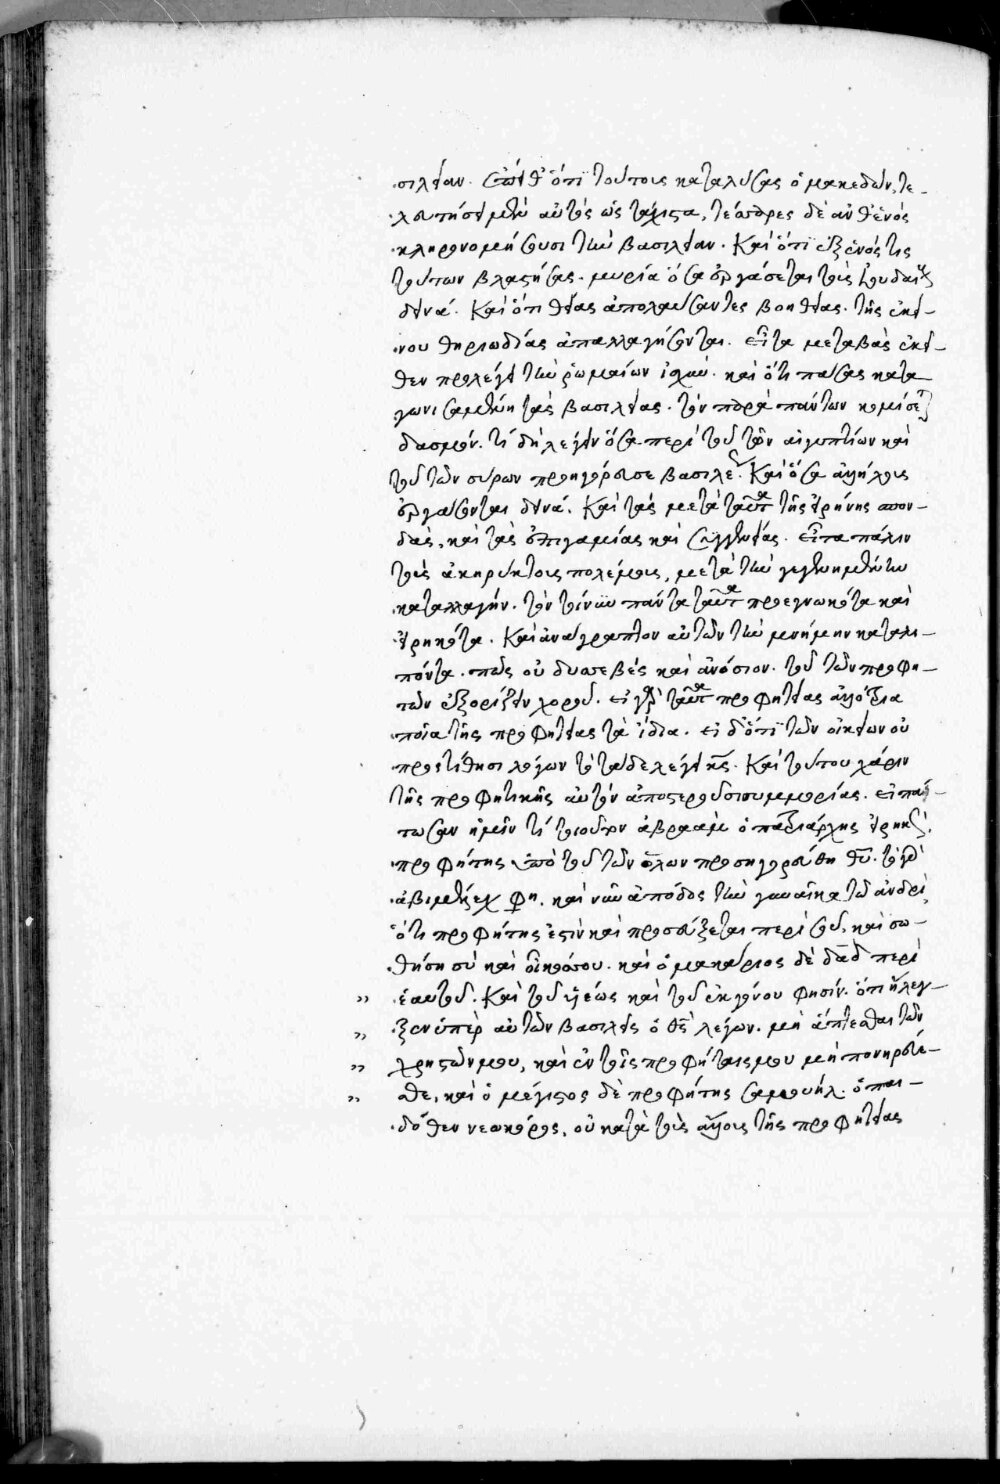 σιλείαν. εἶθ' ὅτι τούτοις καταλύσας ὁ μακεδὼν, τε-
λευτήσει μὲν αὐτὸς ὡς τάχιστα, τέσσαρες δὲ ἀνθ' ἑνὸς
κληρονομήσουσι τὴν βασιλείαν. Καὶ ὅτι ἐξ ἑνός τις
τούτων βλαστήσας. μυρία ὅσα ἐργάσεται τοὺς ἰουδαίους
δεινά. Καὶ ὅτι θείας ἀπολαύσαντες βοηθείας. τῆς ἐκεί-
νου θηριωδίας ἀπαλλαγήσονται. εἶτα μεταβὰς ἐκεῖ-
θεν προλέγει τὴν ῥωμαίων ἰσχύν. καὶ ὅτι πάσας κατα
γωνισαμένη τὰς βασιλείας. τὸν παρὰ πάντων κομίσεται
δασμόν. τί δεῖ λέγειν ὅσα περὶ τοῦ τῶν αἰγυπτίων καὶ
τοῦ τῶν σύρων προηγόρευσε βασιλέως. Καὶ ὅσα ἀλλήλους
ἐργάσονται δεινά. Καὶ τὰς μετὰ ταῦτα τῆς εἰρήνης σπον-
δὰς, καὶ τὰς ἐπιγαμίας καὶ συγγενείας. εἶτα πάλιν
τοὺς ἀκηρύκτους πολέμους, μετὰ τὴν γεγενημένην
καταλλαγήν. τὸν τοίνυν πάντα ταῦτα προεγνωκότα καὶ
εἰρηκότα. Καὶ ἀνάγραπτον αὐτῶν τὴν μνήμην καταλι-
πόντα. πῶς οὐ δυσσεβὲς καὶ ἀνόσιον. τοῦ τῶν προφη-
τῶν ἐξορίζειν χοροῦ. εἰ γὰρ ταῦτα προφητείας ἀλλότρια
ποῖα τῆς προφητείας τὰ ἴδια. εἰ δ' ὅτι τῶν οἰκείων οὐ
προστίθησι λόγων τὸ τάδε λέγει κς. Καὶ τούτου χάριν
τῆς προφητικῆς αὐτὸν ἀποστεροῦσι συμμορίας. εἰπά-
τωσαν ἡμῖν τί τοιοῦτον ἀβραὰμ ὁ πατριάρχης εἰρηκὼς,
προφήτης ὑπὸ τοῦ τῶν ὅλων προσηγορεύθη θυ. τῷ γὰρ
ἀβιμέλεχ φη. καὶ νῦν ἀπόδος τὴν γυναῖκα τῷ ἀνδρὶ,
ὅτι προφήτης ἐστὶν καὶ προσεύξεται περὶ σοῦ, καὶ σω-
θήσῃ σὺ καὶ ὁ οἶκός σου. καὶ ὁ μακάριος δὲ δαδ περὶ
" ἑαυτοῦ. Καὶ τοῦ γένους καὶ τοῦ ἐκγόνου φησίν. ὅτι ἤλεγ-
" ξεν ὑπὲρ αὐτῶν βασιλεῖς ὁ θς λέγων. μὴ ἅπτεσθαι τῶν
" χριστῶν μου, καὶ ἐν τοῖς προφήταις μου μὴ πονηρεύε-
" σθε, καὶ ὁ μέγιστος δὲ προφήτης σαμουὴλ. ὁ παι-
δόθεν νεωκόρος, οὐ κατὰ τοὺς ἄλλους τῆς προφητείας